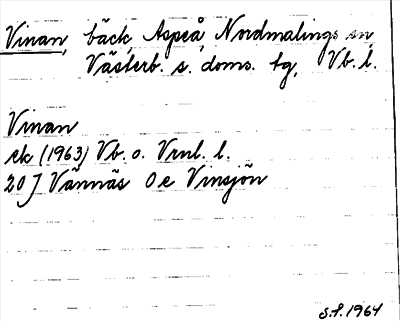 Vinan, bäck, Aspeå, Nordmalings sn,
Västerb. s. doms. tg, Vb. l.
Vinan
ek (1963) Vb. o. Vrnl. l.
20 J Vännäs Oe Vinsjön
S.F. 1964